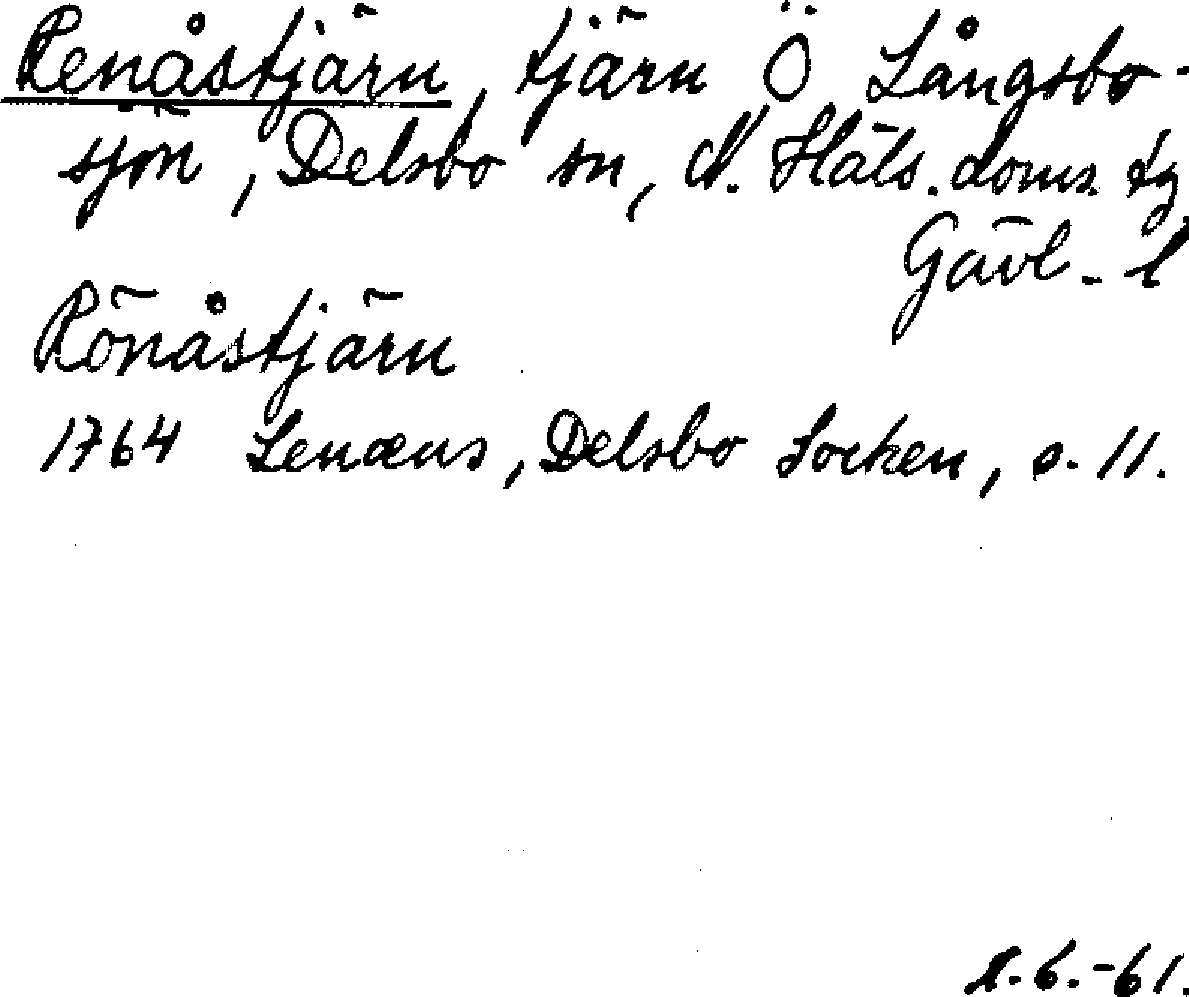 Renåstjärn, tjärn Ö Långsbo-
sjön, Delsbo sn, N. Häls. doms. tg
Gävl. l
Rönåstjärn
1764 Lenæus, Delsbo Socken, s. 11.
6.-61.